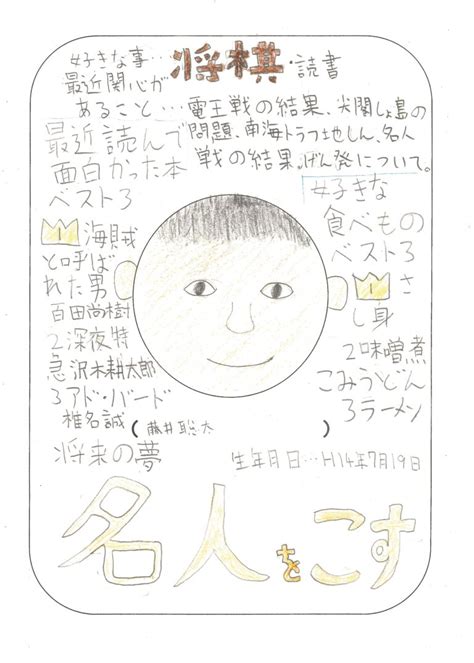 好きな事…将棋・読書
最近関心が
あること…電王戦の結果、尖閣しょ島の
問題、南海トラフ地しん、名人
戦の結果、げん発について。
最近読んで
面白かった本
ベスト3
1海賊
と呼ば
れた男
百田尚樹
2深夜特
急沢木耕太郎
3アド・バード
椎名誠
好きな
食べもの
ベスト3
1さ
し身
2味噌煮
こみうどん
3ラーメン
(藤井聡太)
生年月日…H14年7月19日
将来の夢
名人をこす